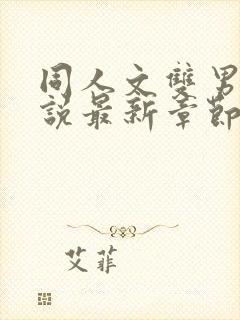 同人文雙男
說最新章節
艾菲